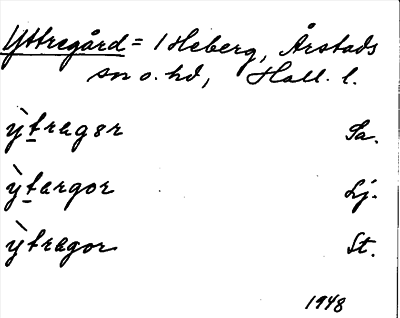 Yttregård = 1 Heberg, Årstads
sn o. hd, Hall. l.
ỳtragər Sa.
ỳtərgor Lj.
ỳtragor St.
1948